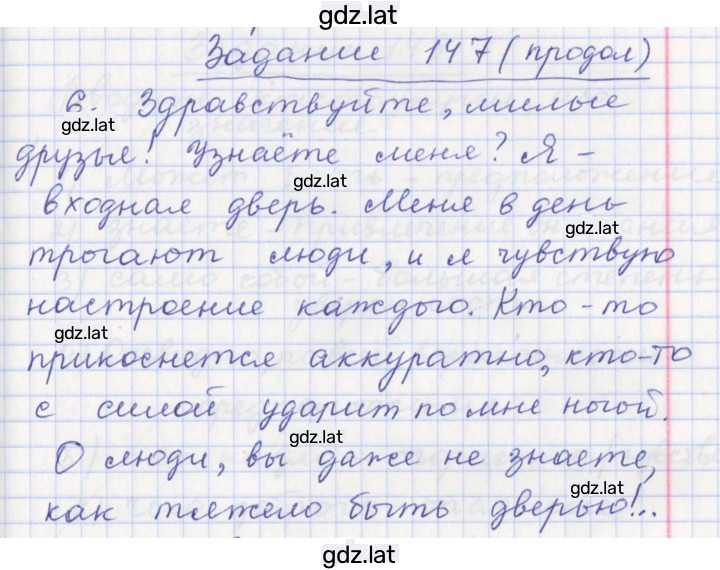 gdz.lat
Задание 147 (продол)
6. Здравствуйте, милые
gdz.lat
друзья! Узнаёте меня? Я –
gdz.lat
входная дверь. Меня в день
gdz.lat
трогают люди, и я чувствую
настроение каждого. Кто-то
gdz.lat
прикоснется аккуратно, кто-то
с силой ударит по мне ногой.
gdz.lat
О люди, вы даже не знаете,
gdz.lat
как тяжело быть дверью!..
gdz.lat